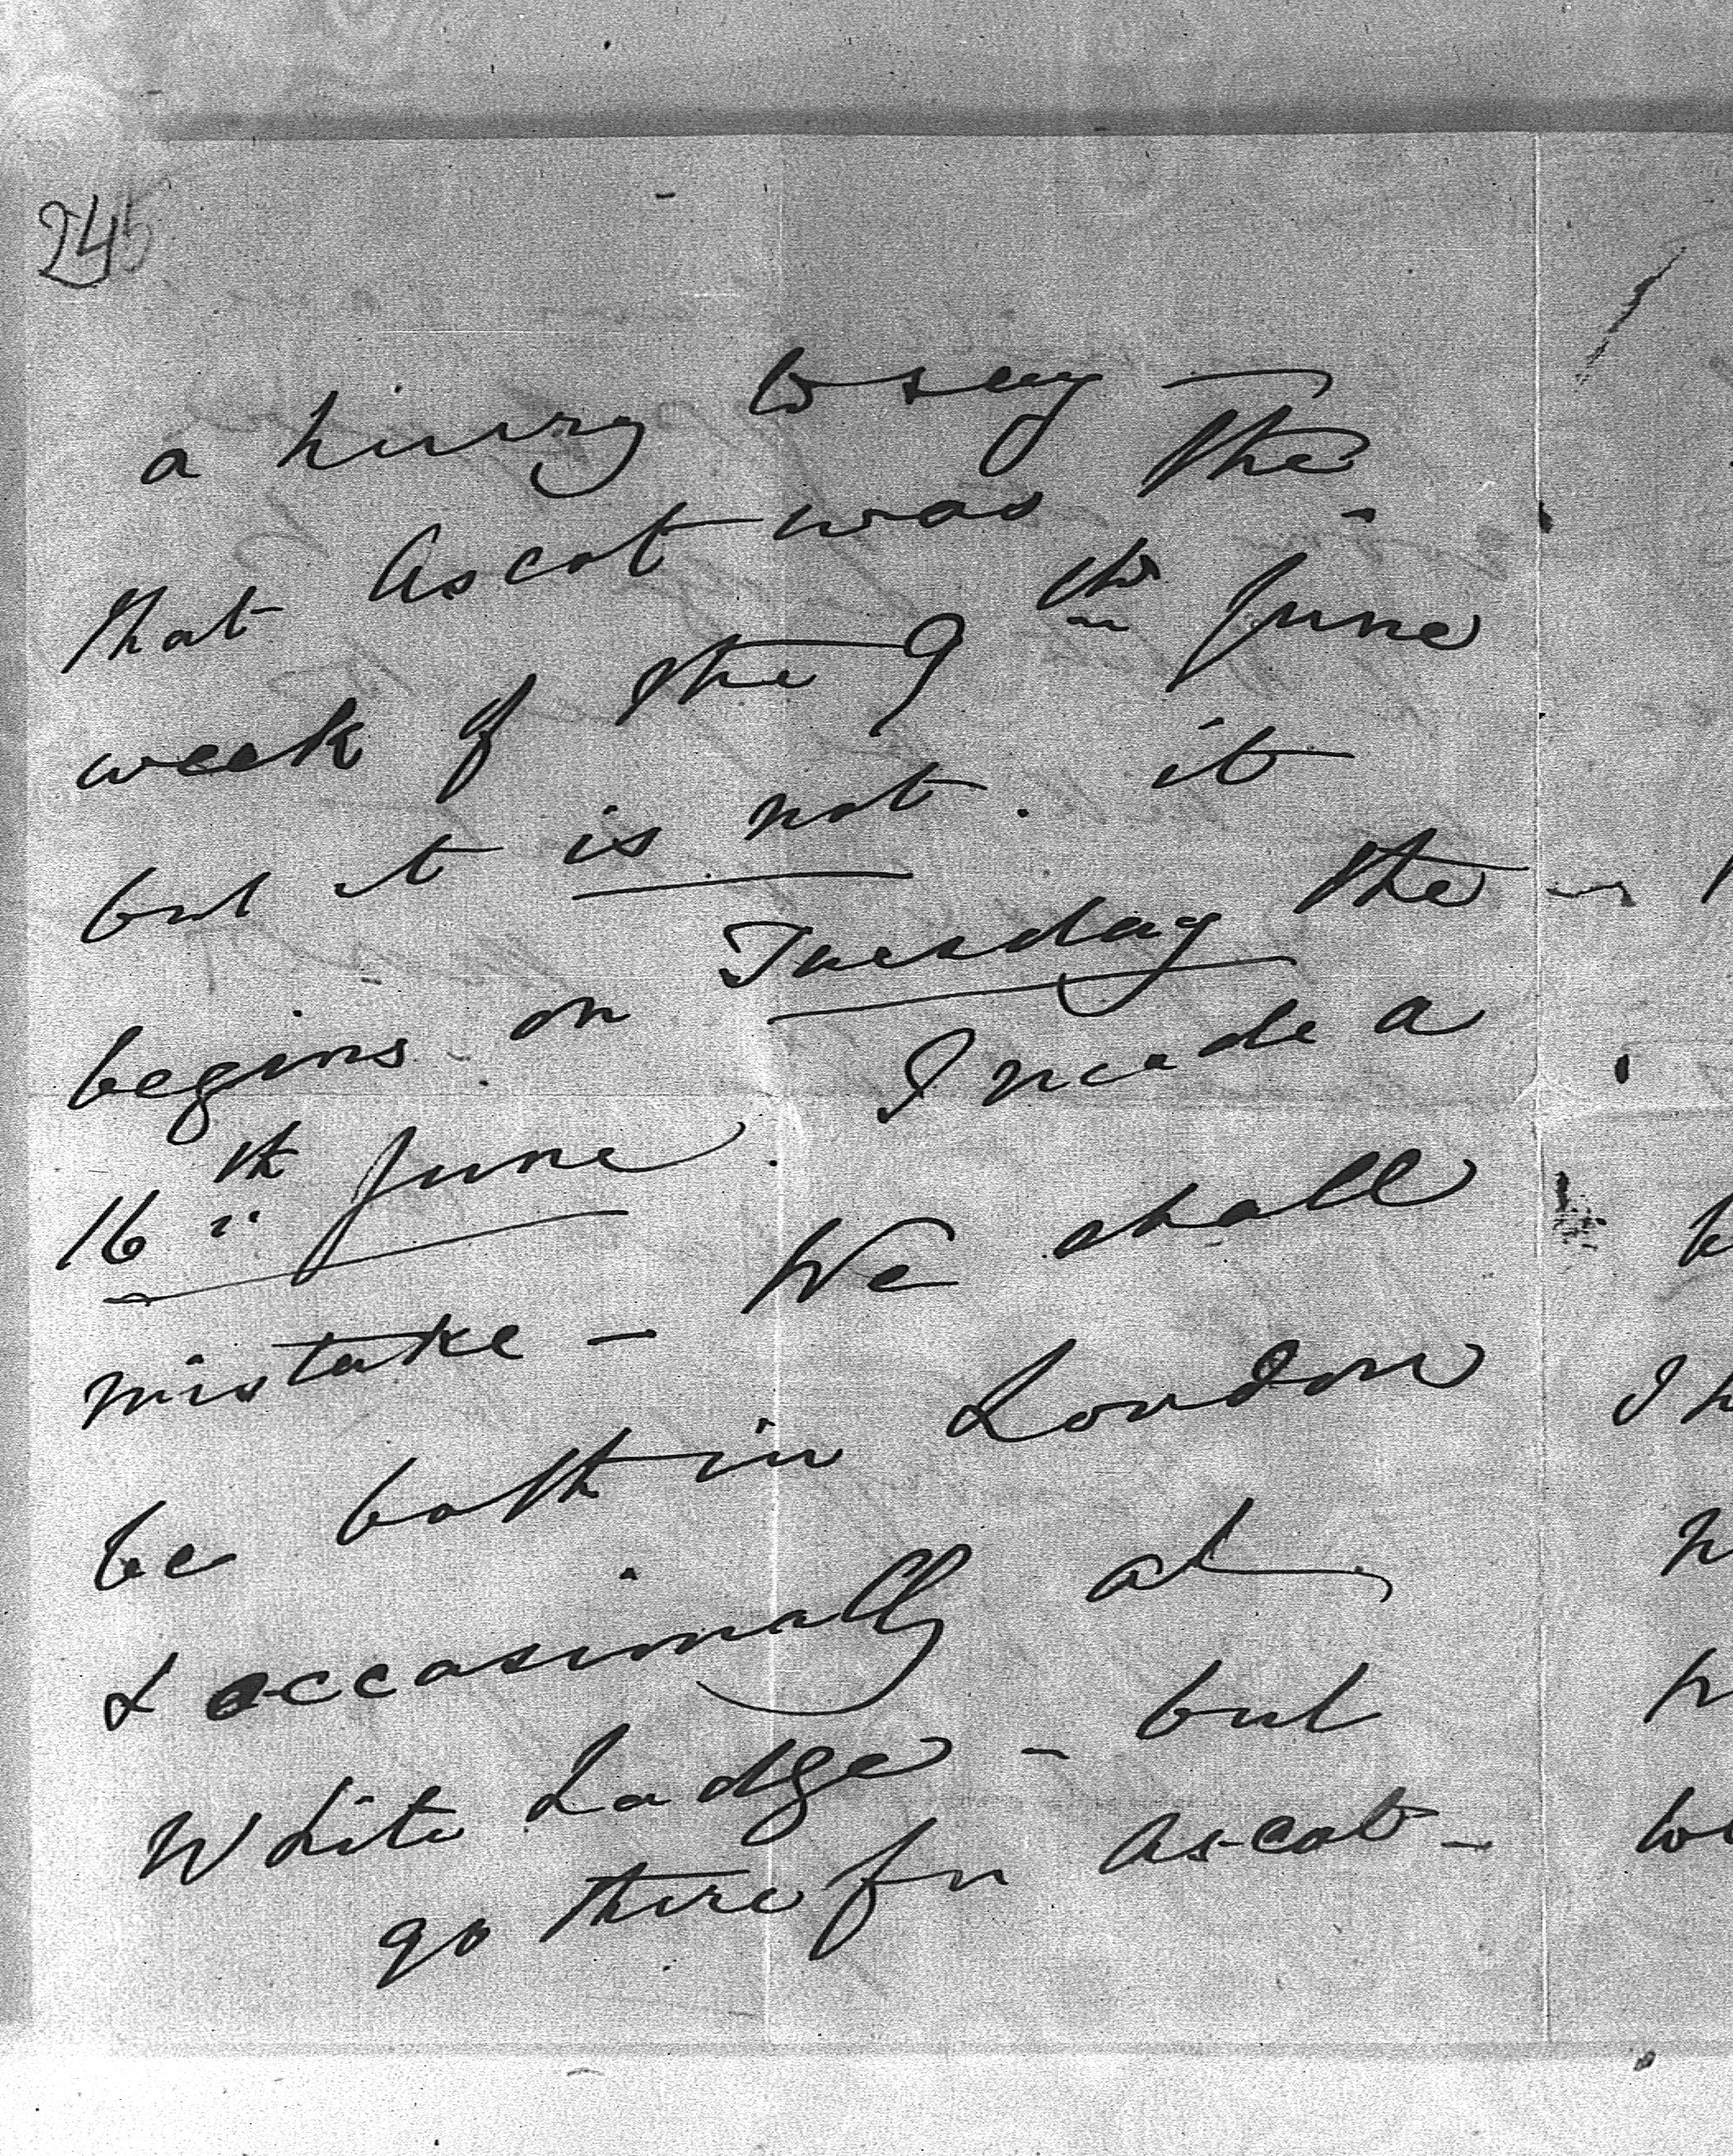 245
a hurry to say
that Ascot was the
week of the 9th June
but it is not. it
begins on Tuesday the
16th June. I made a
mistake - We shall
be both in London
& occasionally at
White Lodge - but
go there for Ascot -